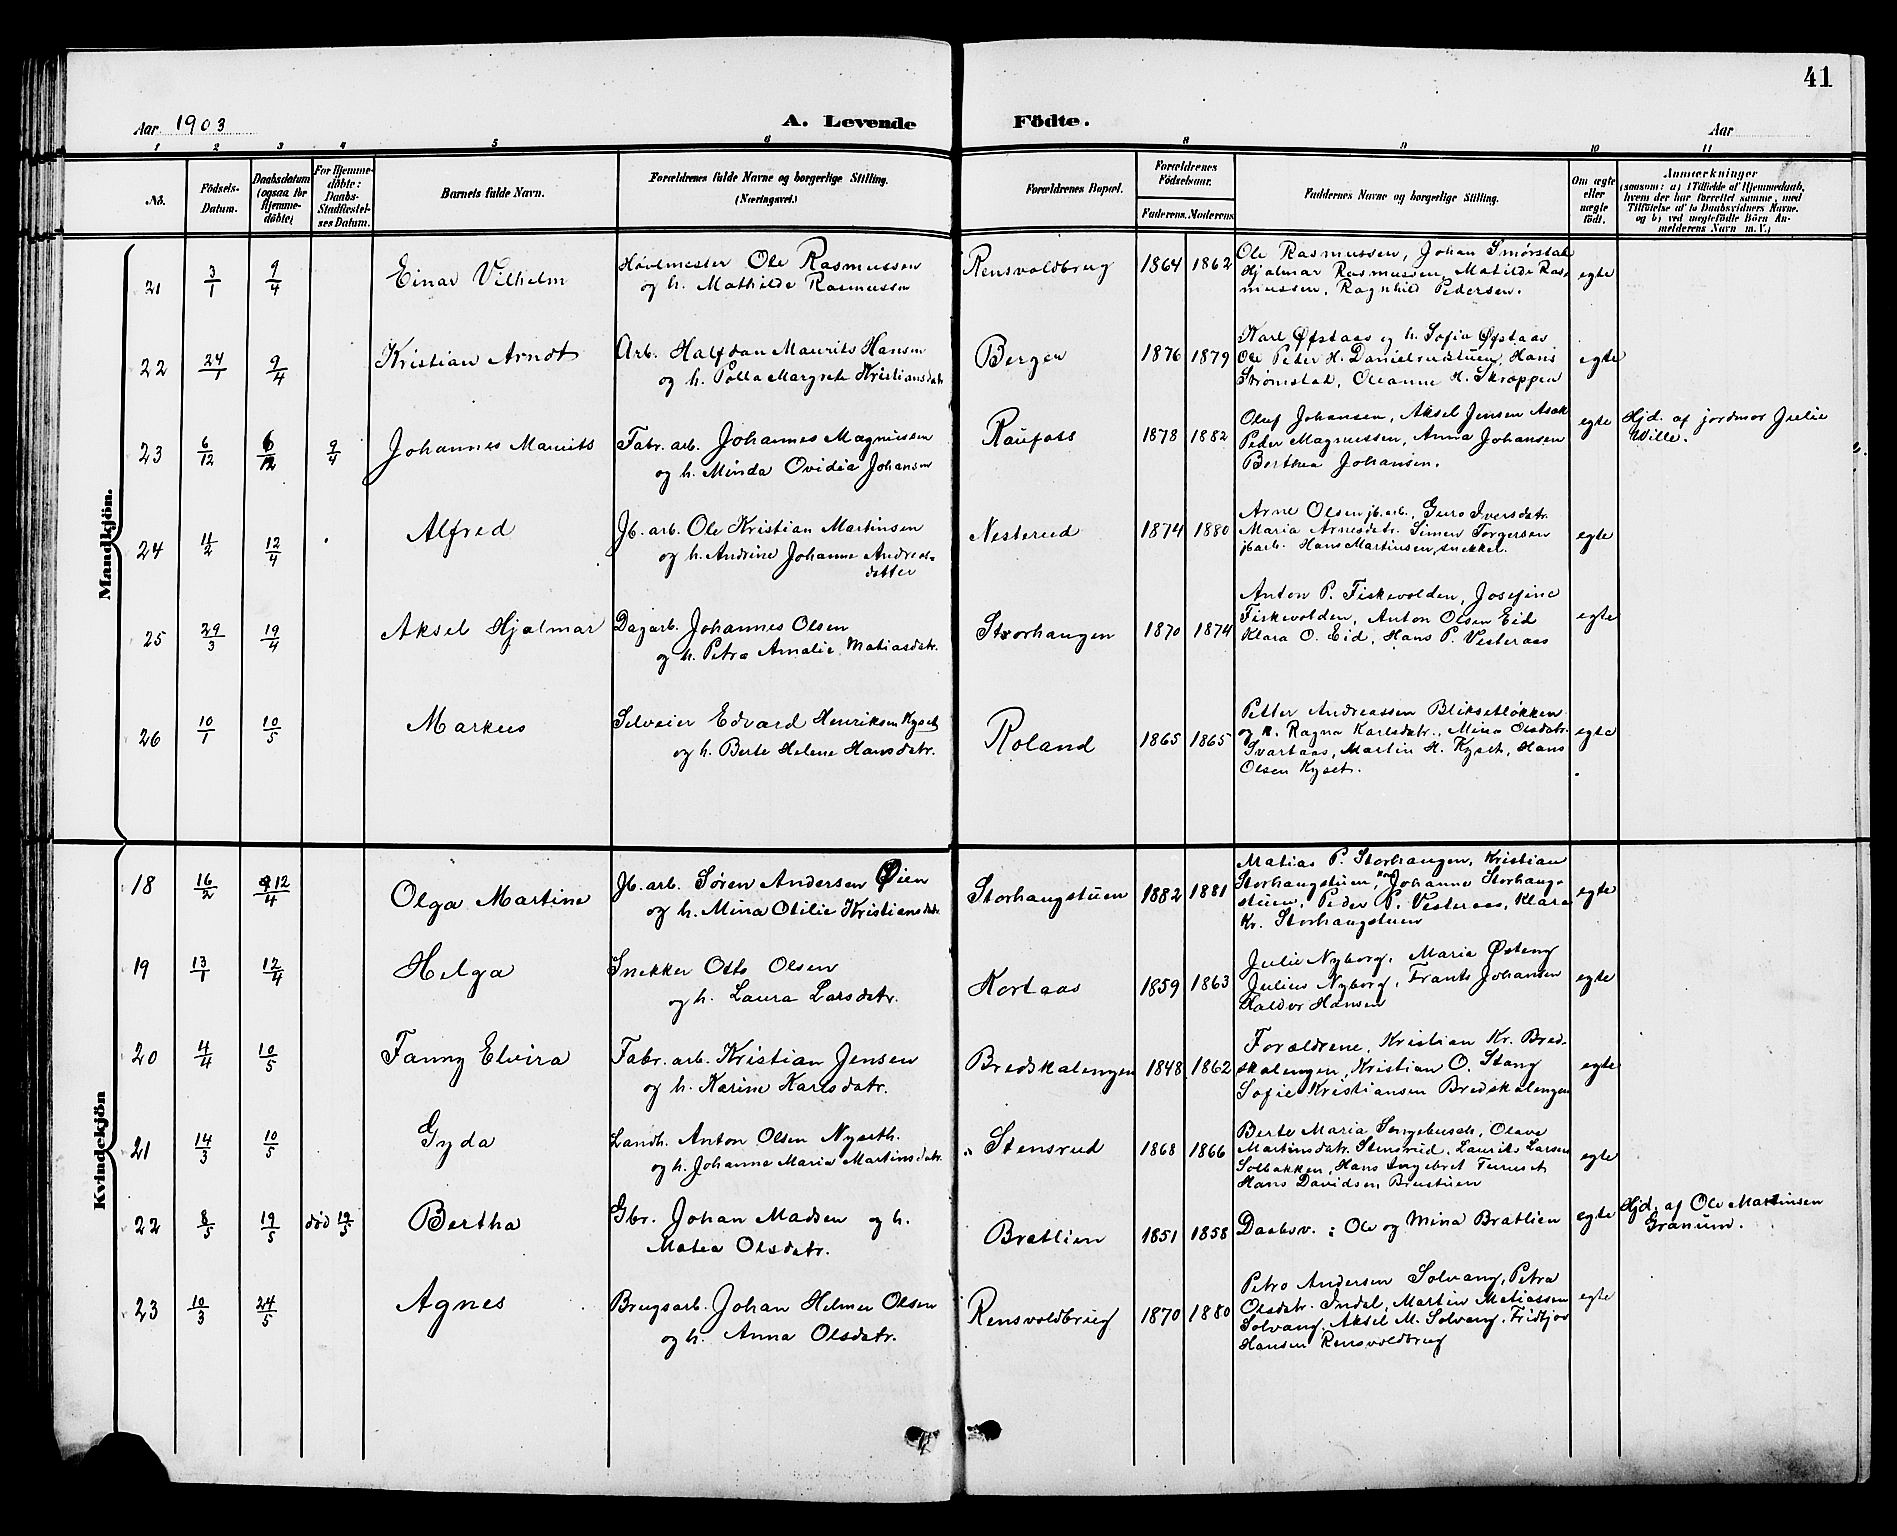 41
Aar 1903
A. Levende Födte.
Aar
1 2 3 4 5 6 8 9 10 11
No.
Födsels-
Datum.
Daabsdatum
(ogsaa for
Hjemme-
døbte)
For Hjemme-
døbte:
Daabs-
Stadfæstel-
ses Datum.
Barnets fulde Navn.
Forældrenes fulde Navne og borgerlige Stilling.
(Næringsvei.)
Forældrenes Bopæl.
Forældrenes
Födselsaar.
Faderens. Moderens
Faddernes Navne og borgerlige Stilling.
Om ægte
eller
uægte
födt.
Anmærkninger
(saasom: a) i Tilfælde af Hjemmedaab,
hvem der har forrettet samme, med
Tilföielse af to Daabsvidners Navne.
og b) ved uægtefödte Börn An-
melderens Navn m. V.)
Mandkjön.
21 3/1 9/4 Einar Vilhelm
Høvlmester Ole Rasmussen
og h. Mathilde Rasmussen
Rensvoldbrug 1864 1862
Ole Rasmussen, Johan Smørstad
Hjalmar Rasmussen, Matilde Ras
mussen, Ragnhild Pedersen.
egte
22 24/1 9/4 Kristian Arndt
Arb. Halfdan Maurits Hansen
og h. Polla Margrete Kristiansdatr
Bergen 1876 1879
Karl Øfstaas og h. Sofie Øfstaas
Ole Peter H. Danielsrudstuen, Hans
Strømstad, Oleanne H. Skroppen
egte
23 6/12 6/12 9/4 Johannes Maurits
Fabr. arb. Johannes Magnussen
og h. Minda Ovidia Johansen
Raufoss 1878 1882
Oluf Johansen, Aksel Jensen Asak
Peder Magnussen, Anna Johansen
Berthea Johansen.
egte
Hjd. af jordmor Julie
Wille.
24 11/2 12/4 Alfred
Jb. arb. Ole Kristian Martinsen
og h. Andrine Johanne Andreas-
datter
Nesterud 1874 1880
Arne Olsen jb. arb., Guro Iversdatr.
Maria Arnesdatr. Simen Torgersen
jb arb. Hans Martinsen snekker.
egte
25 29/3 19/4 Aksel Hjalmar
Dagarb. Johannes Olsen
og h. Petra Amalie Matiasdatr.
Storhaugen 1870 1874
Anton P. Fiskevolden, Josefine
Fiskevolden, Anton Olsen Eid
Klara O. Eid, Hans P. Vesteraas
egte
26 10/1 10/5 Markus
Selveier Edvard Henriksen Kyset
og h. Berte Helene Hansdatr.
Roland 1865 1865
Petter Andreassen Bliksetløkken
og h. Ragna Karlsdatr., Mina Olsdatr.
Svartaas, Martin H. Kyset, Hans
Olsen Kyset.
egte
Kvindekjön
18 16/2 12/4 Olga Martine
Jb. arb. Søren Andersen Øien
og h. Mina Otilie Kristiansdatr
Storhaugstuen 1882 1881
Matias P. Storhaugen, Kristian
Storhaugstuen, Johanne Storhaug-
stuen, Peder P. Vesteraas, Klara
Kr. Storhaugstuen
egte
19 13/1 12/4 Helga
Snekker Otto Olsen
og h. Laura Larsdatr.
Kortaas 1859 1863
Julie Nyborg, Maria Østeng
Julius Nyborg, Frants Johansen
Haldor Hansen
egte
20 4/4 10/5 Fanny Elvira
Fabr. arb. Kristian Jensen
og h. Karine Karlsdatr.
Bredskalengen 1848 1862
Forældrene, Kristian Kr. Bred-
skalengen, Kristian O. Stang
Sofie Kristiansen Bredskalengen
egte
21 14/3 10/5 Gyda
Landh. Anton Olsen Nyseth.
og h. Johanne Marie Martinsdatr.
Stensrud 1868 1866
Berte Maria Sangebusch, Olave
Martinsdatr. Stensrud, Laurits Larsen
Solbakken, Hans Ingebret Furuset
Hans Davidsen Brustuen
egte
22 8/5 19/5 død 19/5 Bertha
Gbr. Johan Madsen og h.
Matea Olsdatr.
Bratlien 1851 1858
Daabsv.: Ole og Mina Bratlien
egte
Hjd. af Ole Martinsen
Granum.
23 10/3 24/5 Agnes
Brugsarb. Johan Helmer Olsen
og h. Anna Olsdatr.
Rensvoldbrug 1870 1880
Petro Andersen Solvang, Petra
Olsdatr. Indal, Martin Matiassen
Solvang, Aksel M. Solvang, Fridtjov
Hansen Rensvoldbrug
egte